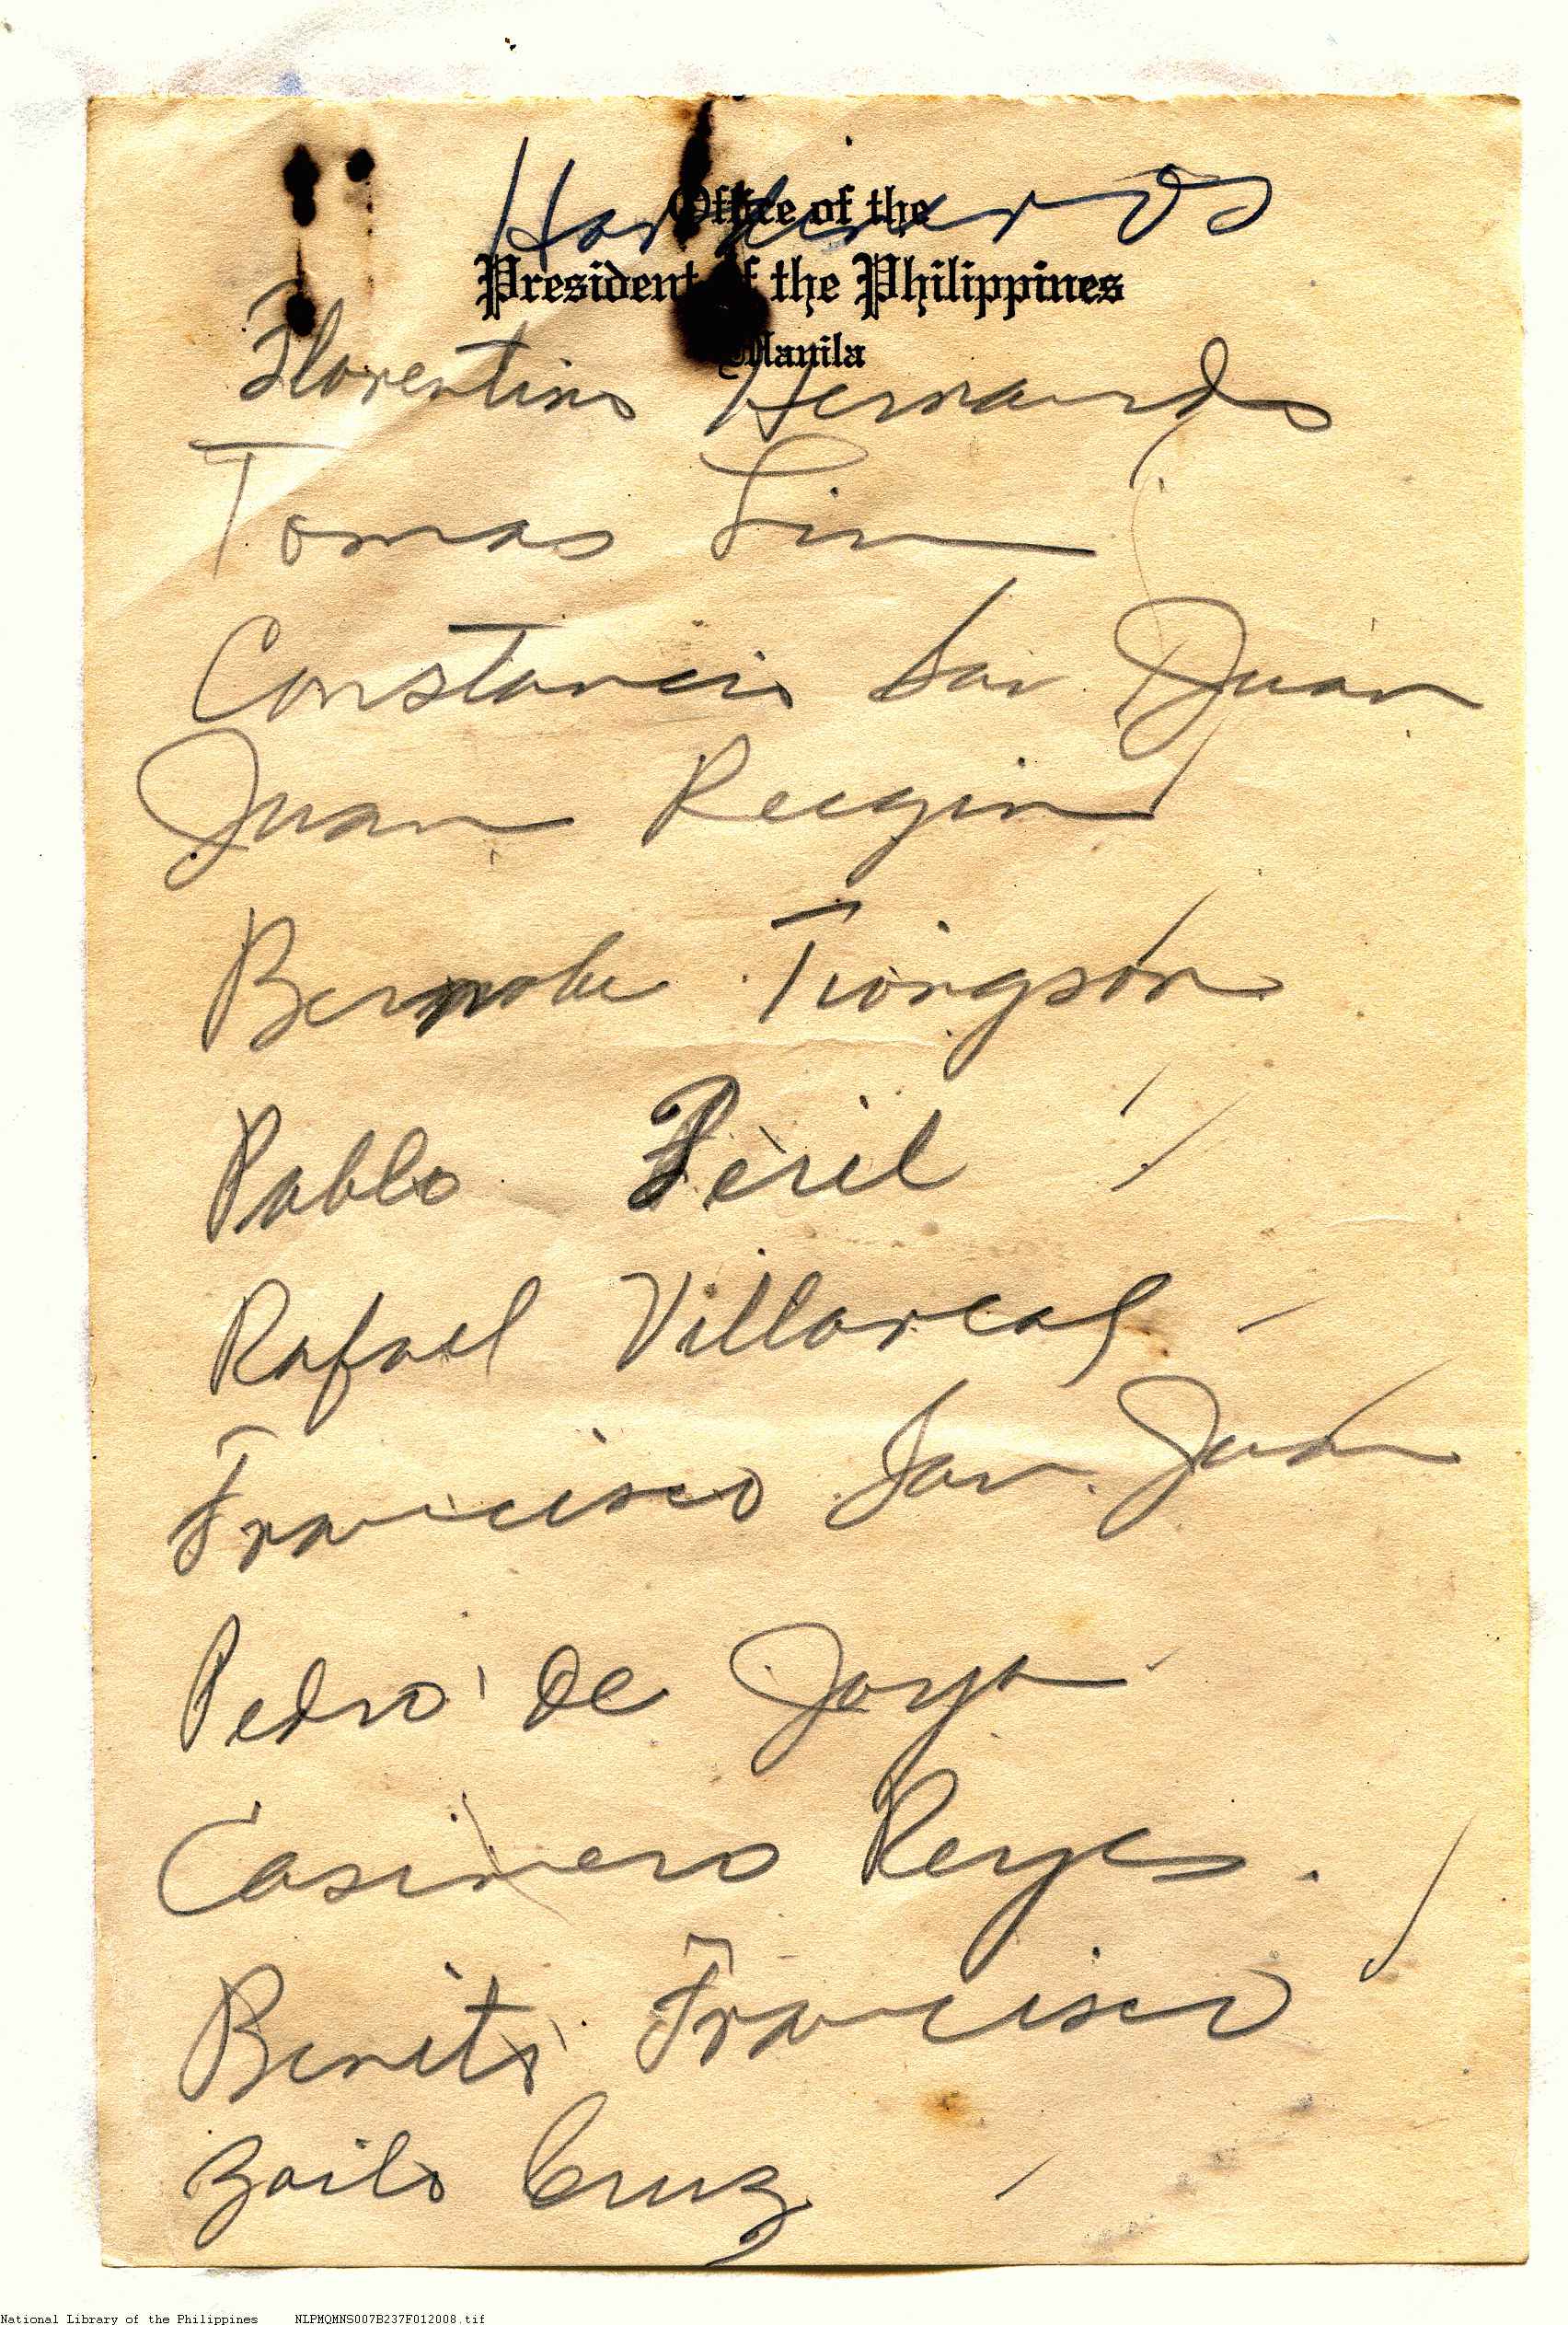 Office of the
President of the Philippines
Manila
Florentino Hernando
Tomas Lim
Constancio San Juan
Juan
Bernabe Tiongson
Pablo Peril
Rafael Villareal
Francisco San Juan
Pedro de Joya
Casimero Reyes.
Benito Francisco
Zoilo Cruz
National Library of the Philippines NLPMQMNS007B237F012008.tif